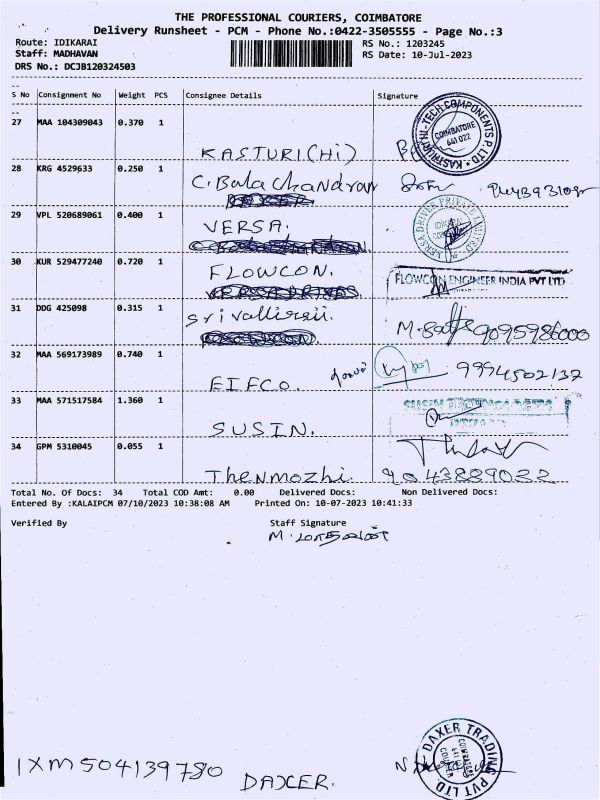 THE PROFESSIONAL COURIERS, COIMBATORE
Delivery Runsheet - PCM - Phone No.:0422-3505555 - Page No.:3
Route: IDIKARAI RS No.: 1203245
Staff: MADHAVAN RS Date: 10-Jul-2023
DRS No.: DCJB120324503
S No Consignment No Weight PCS Consignee Details Signature
27 MAA 104309043 0.370 1
KASTURI(Hi)
KASTHURI HI-TECH COMPONENTS P. LTD
COIMBATORE
641 022
28 KRG 4529633 0.250 1
C. Bala Chandran
29 VPL 520689061 0.400 1
VERSA.
VERSA DRIVES PRIVATE LIMITED
30 KUR 529477240 0.720 1
FLOWCON.
FLOWCON ENGINEER INDIA PVT LTD
31 DDG 425098 0.315 1
Srivalliraji. 9095986000
32 MAA 569173989 0.740 1
EIFCO. 9994502137
33 MAA 571517584 1.360 1
SUSIN.
34 GPM 5310045 0.055 1
Thenmozhi. 9043889032
Total No. Of Docs: 34 Total COD Amt: 0.00 Delivered Docs: Non Delivered Docs:
Entered By :KALAIPCM 07/10/2023 10:38:08 AM Printed On: 10-07-2023 10:41:33
Verified By Staff Signature
M. மாதவன்
DAXER TRADING PVT LTD
IXM504139780 DAXCER.